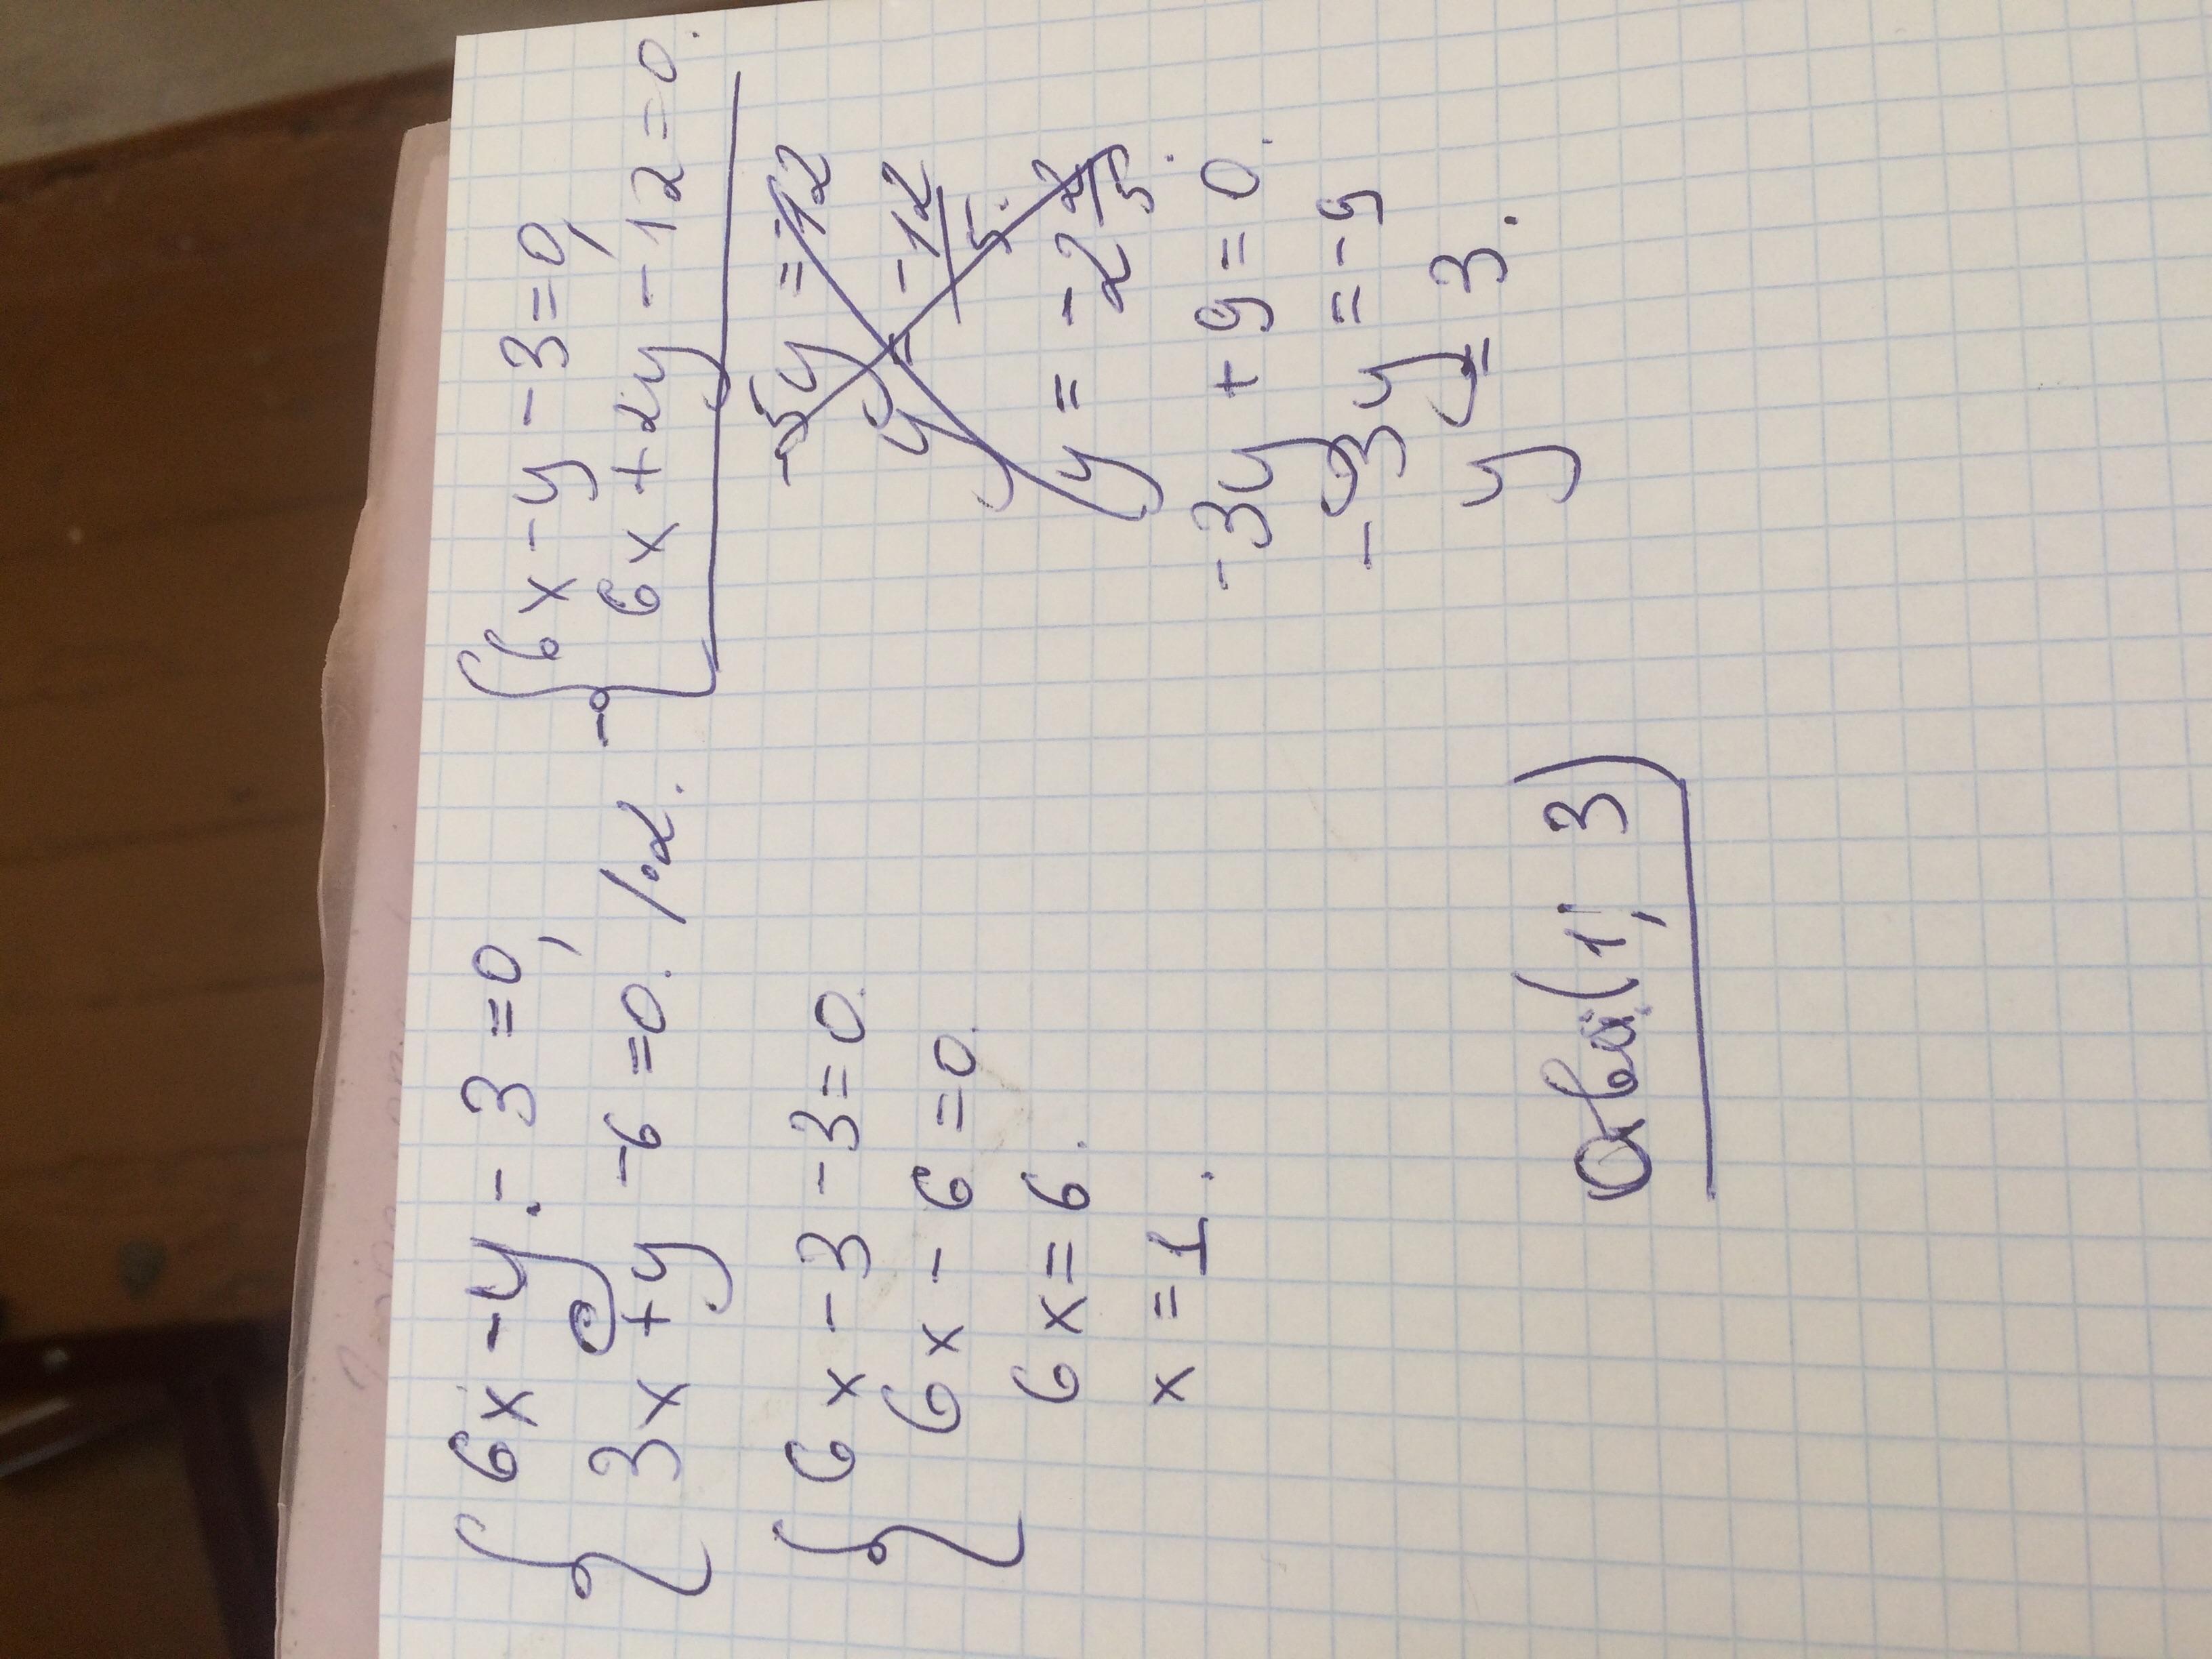 6x - y - 3 = 0,
3x + y - 6 = 0. / · 2.
- 6x - y - 3 = 0,
6x + 2y - 12 = 0.
-5y = 12
y = -12/5.
y = -2 2/5.
-3y + 9 = 0.
-3y = -9
y = 3.
6x - 3 - 3 = 0.
6x - 6 = 0.
6x = 6.
x = 1.
Ответ (1; 3)